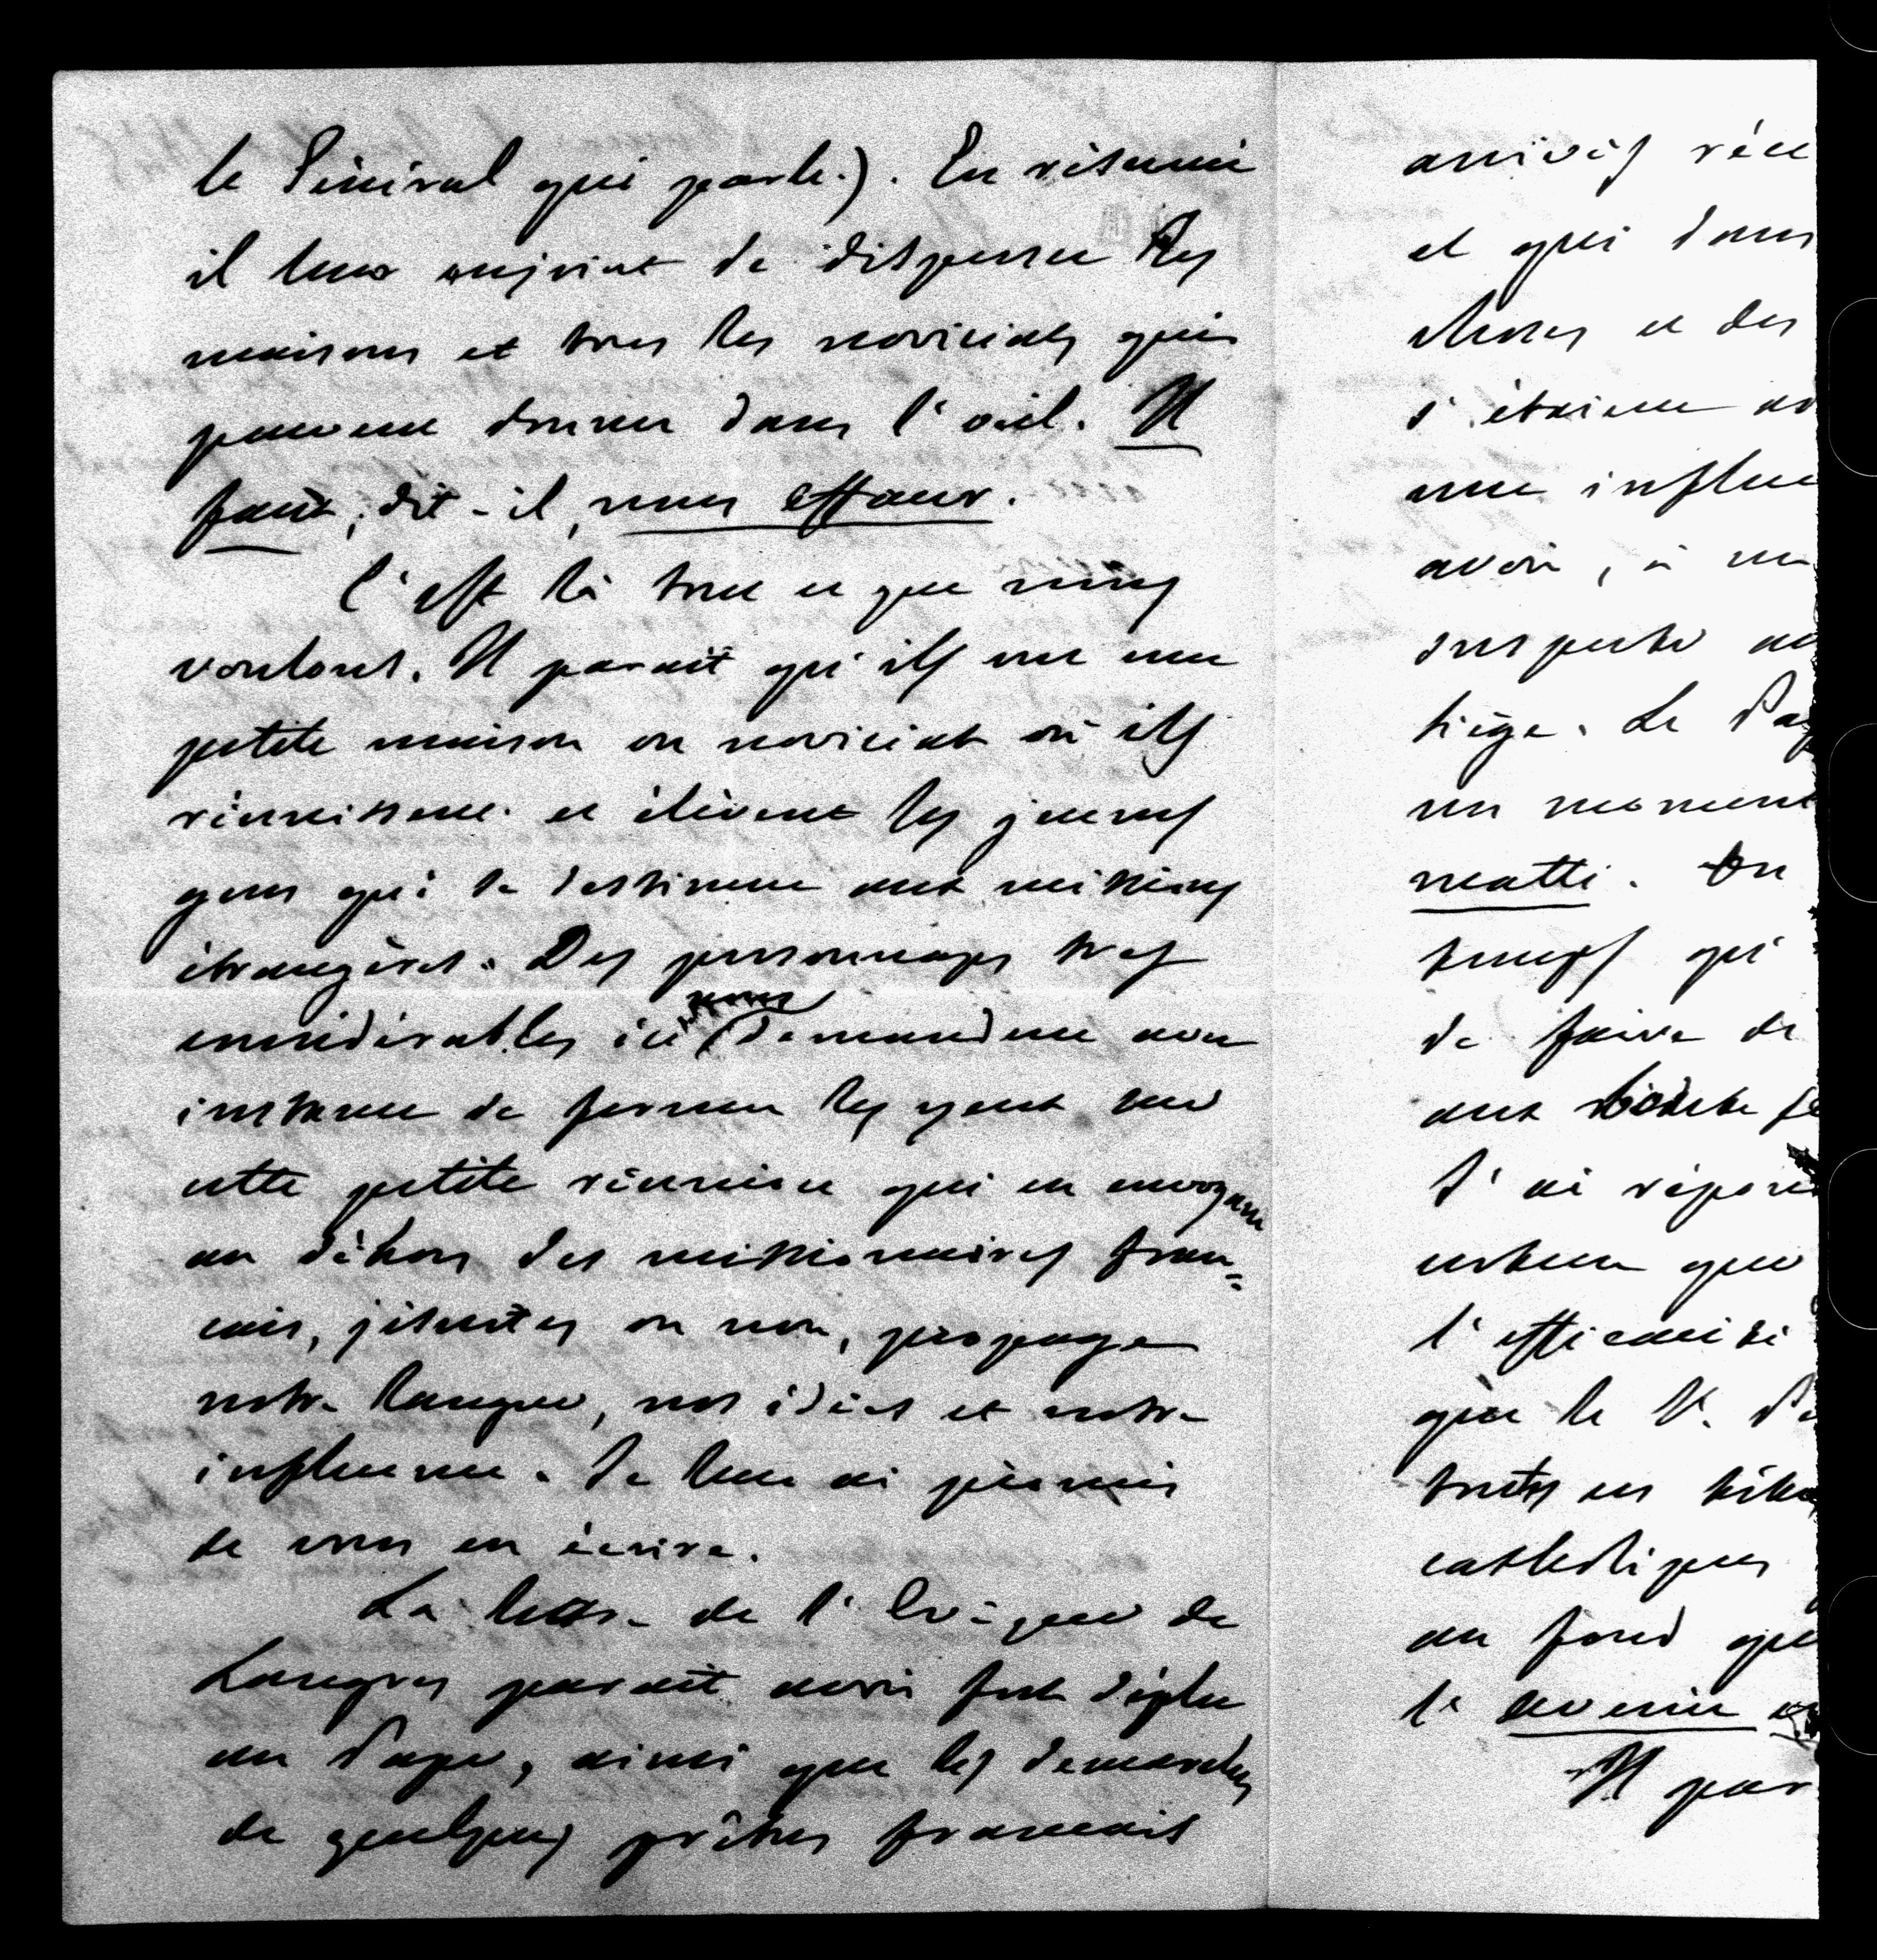 le Général qui parle.). En résumé
il leur enjoint de disperser les
maisons et tous les noviciats qui
peuvent donner dans l'œil. Il
faut, dit-il, nous effacer.
C'est là tout ce que nous
voulons. Il paraît qu'ils ont une
petite maison ou noviciat où ils
réunissent et élèvent les jeunes
gens qui se destinent aux missions
étrangères. Des personnages très
considérables ici nous demandent avec
instance de fermer les yeux sur
cette petite réunion qui en envoyant
au déhors des missionnaires fran=
cais, jésuites ou non, propage
notre langue, nos idées et notre
influence. Je leur ai promis
de vous en écrire.
La lettre de l'Evêque de
Langres paraît avoir fort déplu
au Pape, ainsi que les demarches
de quelques prêtres francais
arrivés réce
et qui dans
choses et des
s'étaient
une influe
avoir, à
suspecte
siège. Le Pap
un moment
matti. On
temps qui
de faire de
aux
J'ai répon
certain que
l'efficacité
que le V. P
toutes les
catholiques
au fond que
l'avenir
Il par